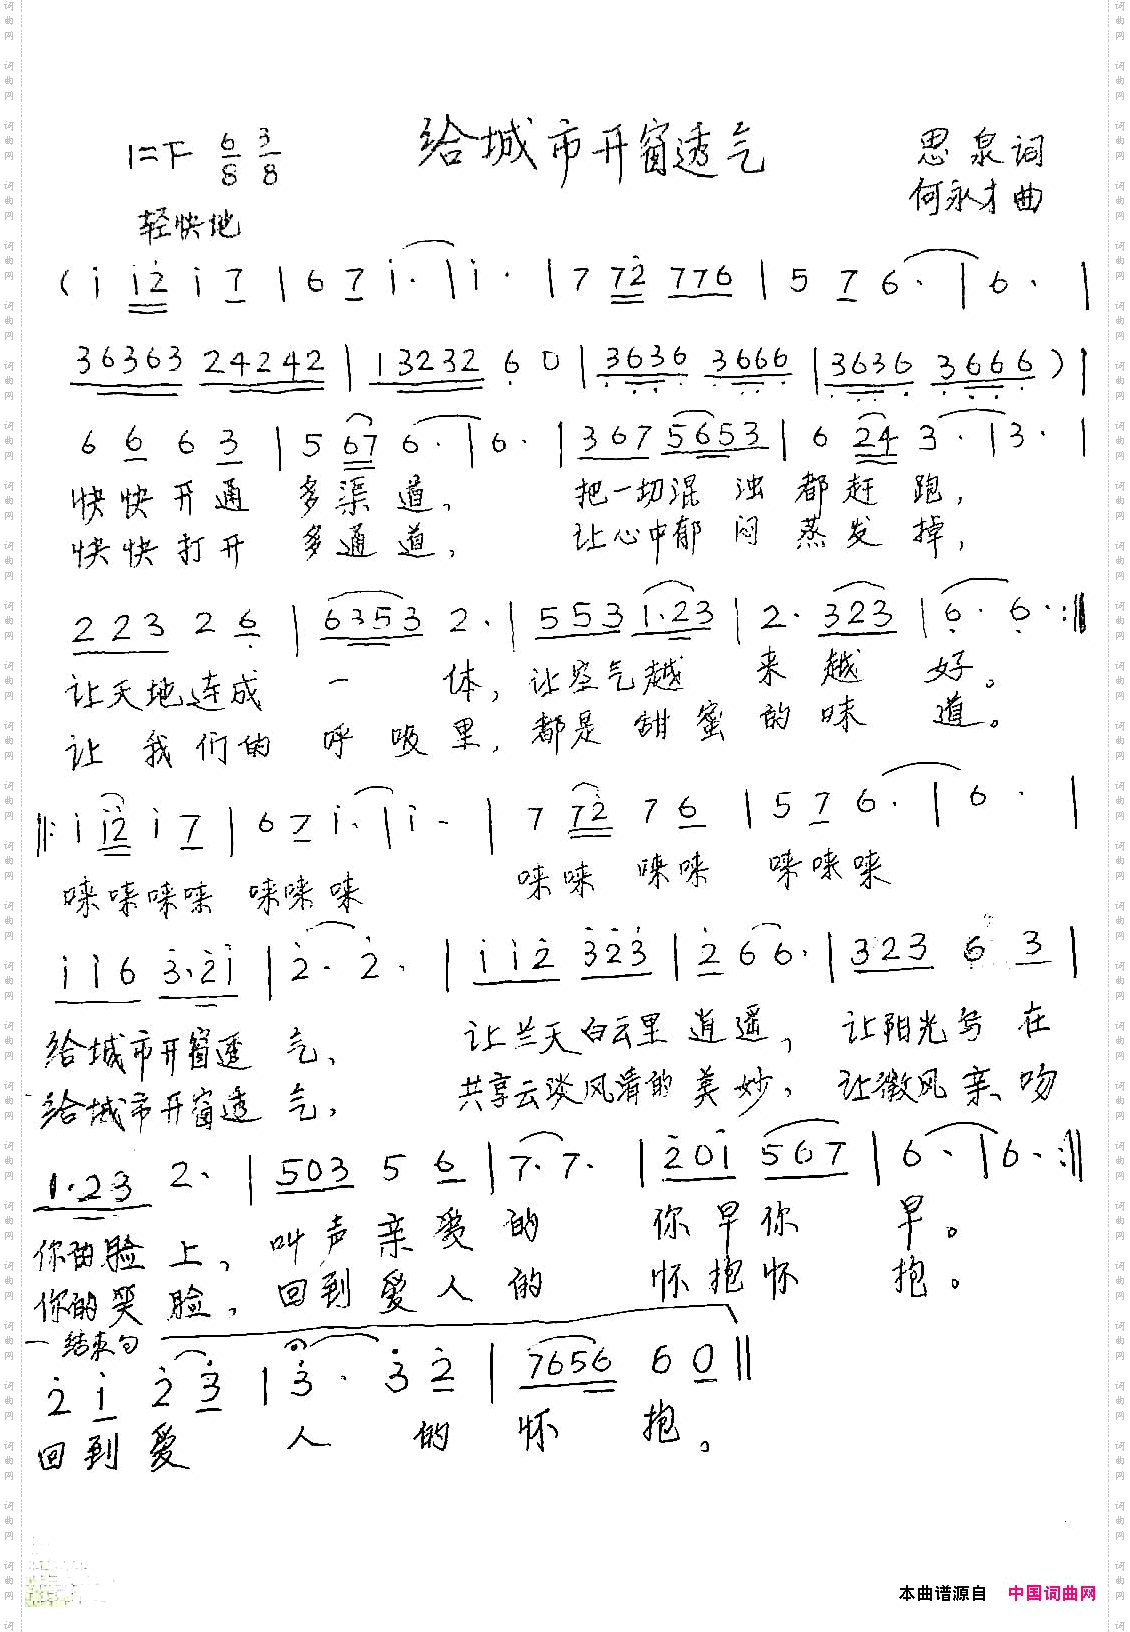 给城市开窗透气
1=F 6/8 3/8
思泉词
何永才曲
轻快地
(i i2 i 7 | 6 7 i· | i· | 7 72 776 | 5 7 6· | 6· |
36363 24242 | 13232 6 0 | 3636 3666 | 3636 3666 ) |
6 6 6 3 | 5 67 6· | 6· | 367 5653 | 6 24 3· | 3· |
快快开通 多渠道, 把一切混浊都赶跑,
快快打开 多通道, 让心中郁闷蒸发掉,
223 2 6 | 6353 2· | 553 1·23 | 2· 323 | 6· 6· :||
让天地连成一体, 让空气越来越好。
让我们的呼吸里, 都是甜蜜的味道。
||: i i2 i 7 | 6 7 i· | i· | 7 72 7 6 | 5 7 6· | 6· |
唻唻唻唻 唻唻唻 唻唻 唻唻 唻唻唻
i i 6 3·2i | 2· 2· | i i 2 323 | 2 6 6· | 323 6 3 |
给城市开窗透气, 让兰天白云里逍遥, 让阳光写在
给城市开窗透气, 共享云淡风清的美妙, 让微风亲吻
1·23 2· | 503 5 6 | 7· 7· | 20i 567 | 6· | 6· :||
你的脸上, 叫声亲爱的 你早你早。
你的笑脸, 回到爱人的 怀抱怀抱。
结束句
2 i 2 3 | 3· 3 2 | 7656 6 0 ||
回到爱人的怀抱。
本曲谱源自 中国词曲网